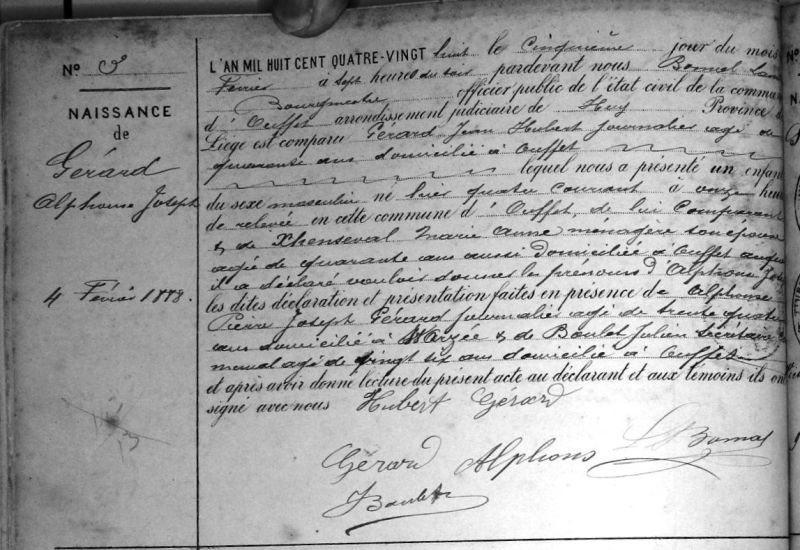 N° 3
NAISSANCE
de
Gérard
Alphonse Joseph
4 Février 1888.
L'AN MIL HUIT CENT QUATRE-VINGT huit le cinquième jour du mois
Février à sept heures du soir pardevant nous
Bourgmestre officier public de l'état civil de la commune
d'Ouffet arrondissement judiciaire de Huy Province
Liége est comparu Gérard Jean Hubert Journalier agé de
quarante ans domicilié à Ouffet
lequel nous a présenté un enfant
du sexe masculin né hier quatre courant à onze heu
de relevée en cette commune d'Ouffet, de lui Comparant
& de Xhenseval Marie Anne ménagère son épouse
agée de quarante ans aussi domiciliée à Ouffet auquel
il a déclaré vouloir donner les prénoms d'Alphonse Jos
les dites déclaration et présentation faites en présence de Alphonse
Pierre Joseph Gérard Journalier agé de trente quatre
ans domicilié à Warzée & de Boulet Julien Secrétaire
munal agé de vingt six ans domicilié à Ouffet
et après avoir donné lecture du présent acte au déclarant et aux témoins ils ont
signé avec nous Hubert Gerard
Gérard Alphons